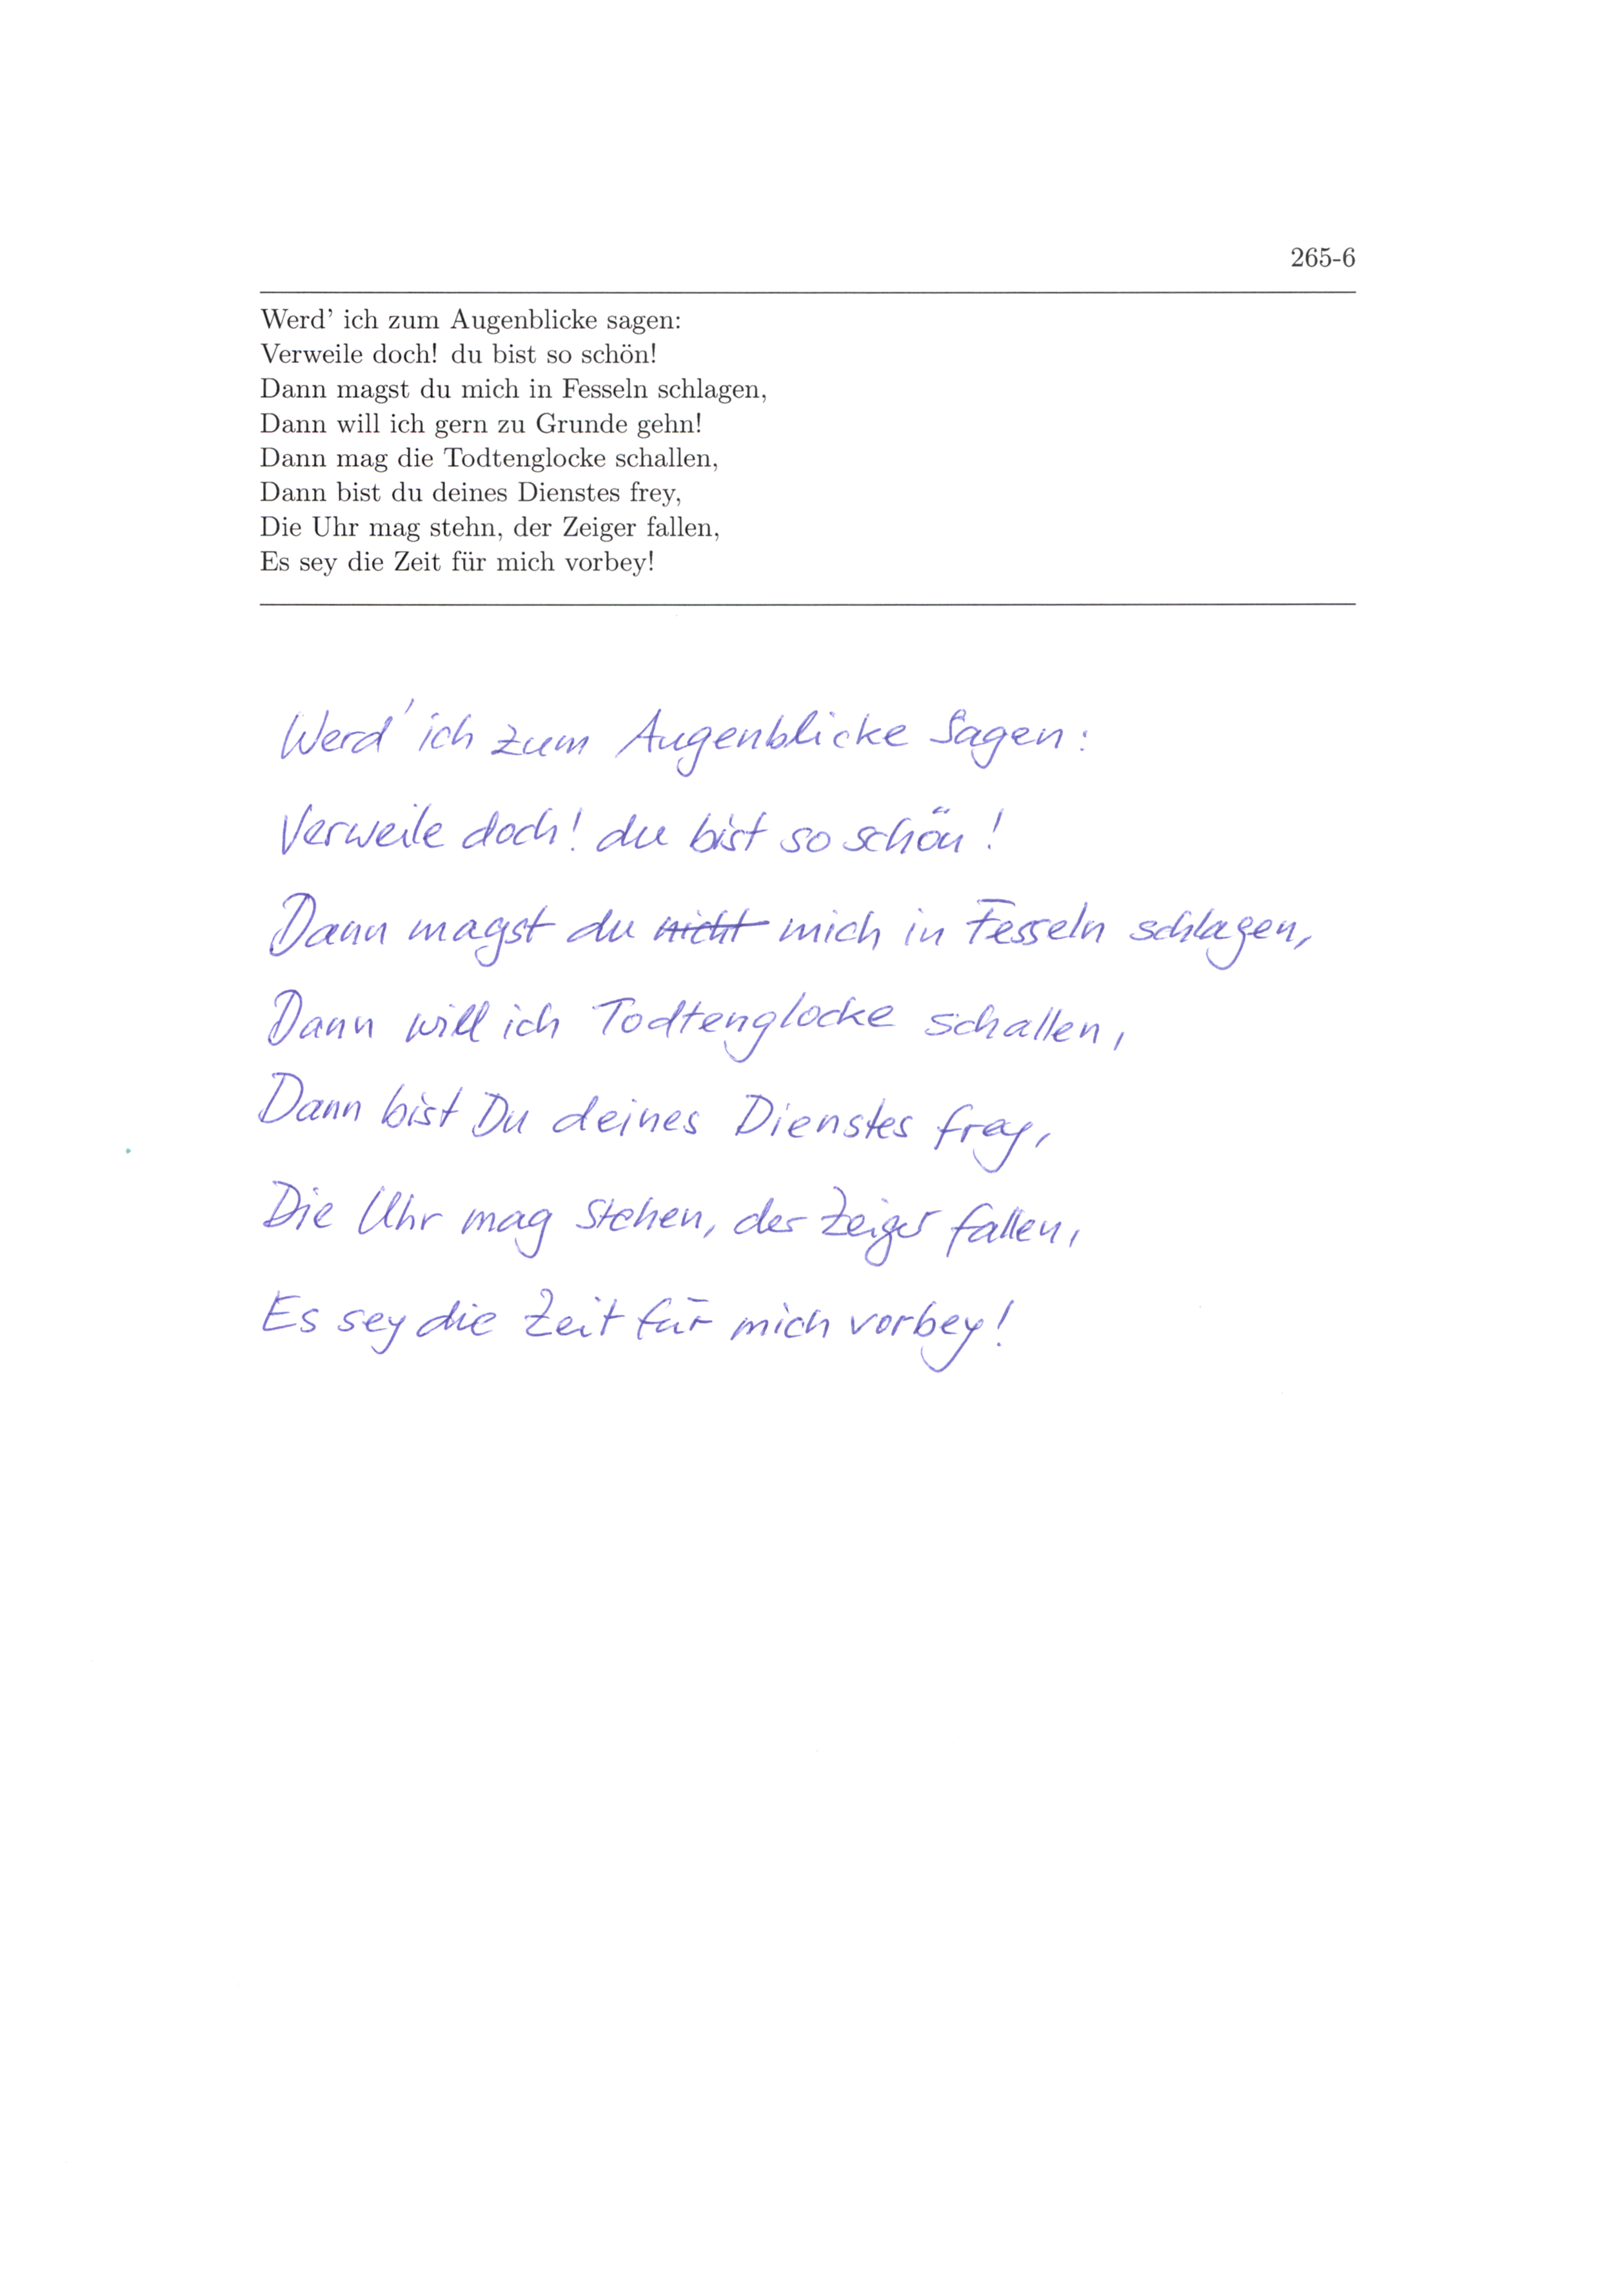 265-6
Werd' ich zum Augenblicke sagen:
Verweile doch! du bist so schön!
Dann magst du mich in Fesseln schlagen,
Dann will ich gern zu Grunde gehn!
Dann mag die Todtenglocke schallen,
Dann bist du deines Dienstes frey,
Die Uhr mag stehn, der Zeiger fallen,
Es sey die Zeit für mich vorbey!
Werd' ich zum Augenblicke Sagen:
Verweile doch! du bist so schön!
Dann magst du nicht mich in Fesseln schlagen,
Dann will ich Todtenglocke schallen,
Dann bist Du deines Dienstes frey,
Die Uhr mag stehen, der Zeiger fallen,
Es sey die Zeit für mich vorbey!